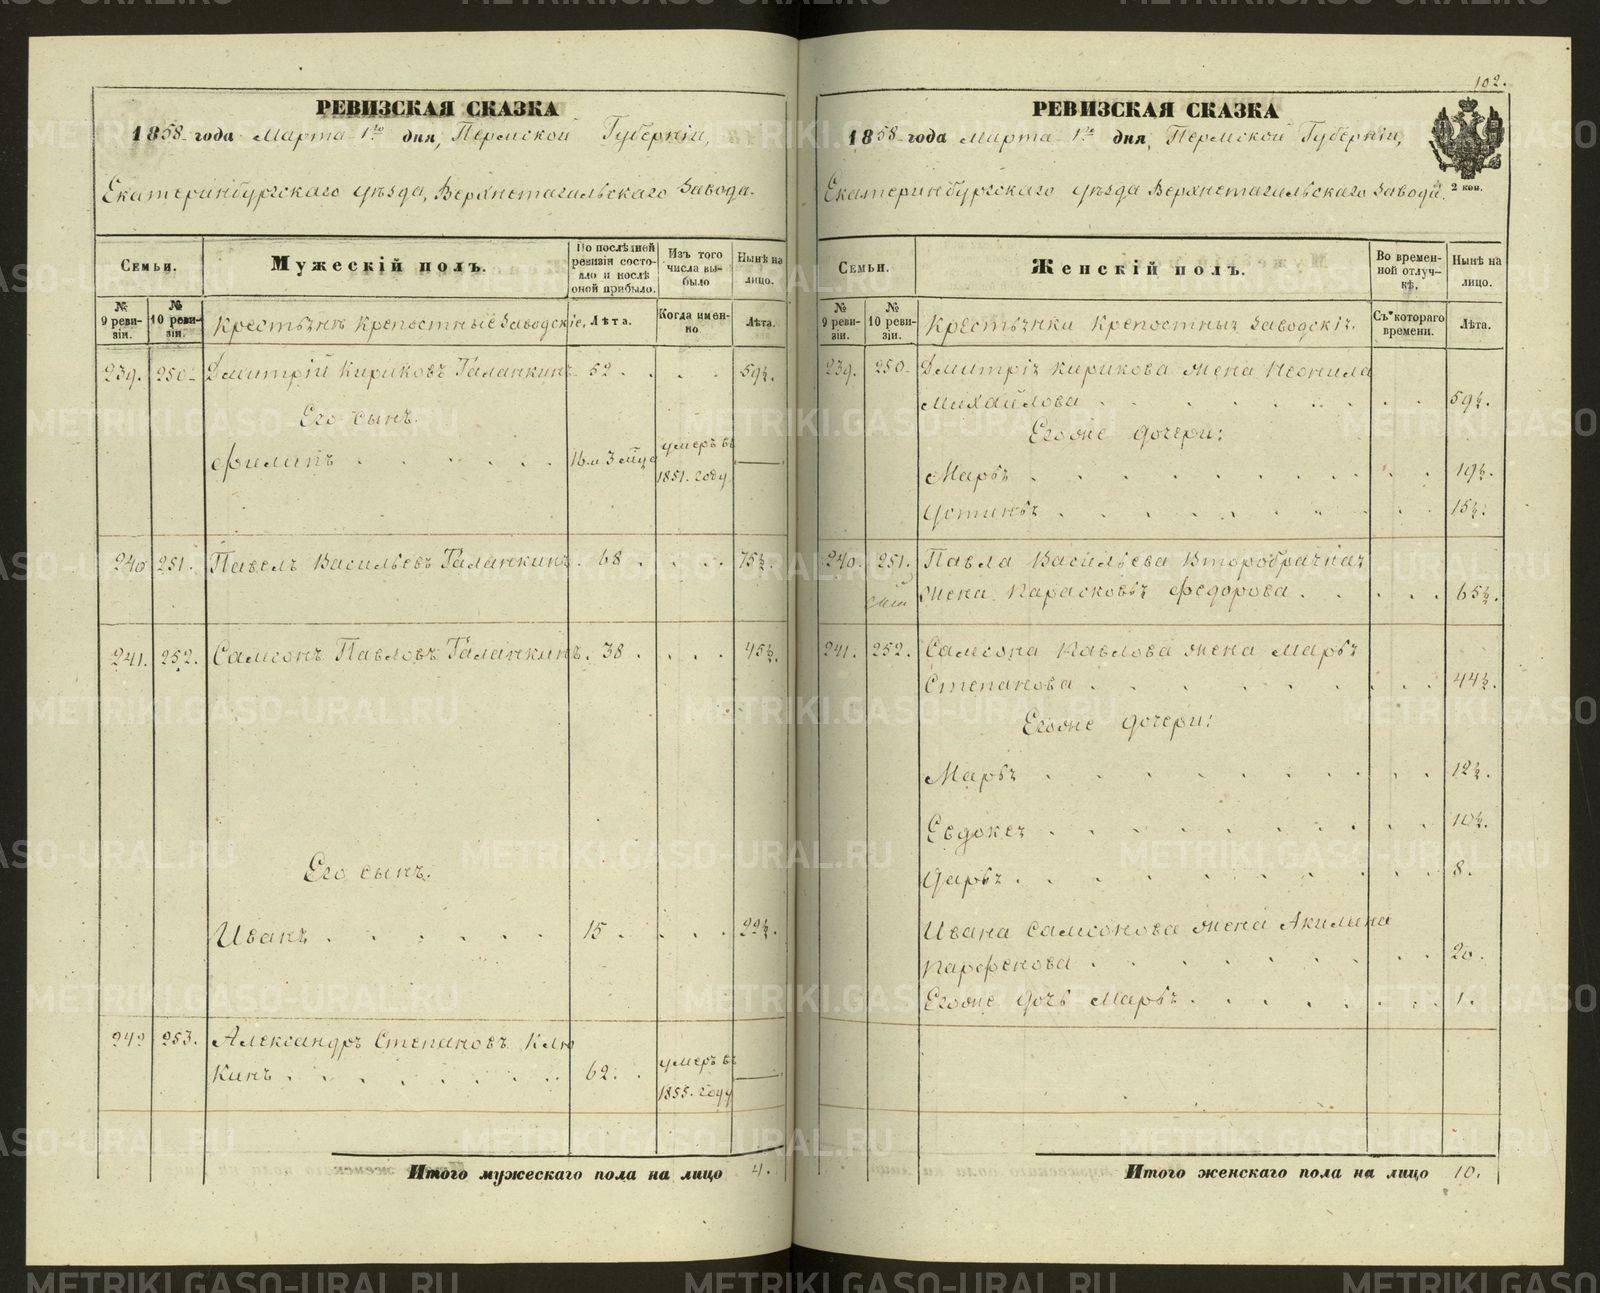 102.
РЕВИЗСКАЯ СКАЗКА
1858 года Марта 1го дня, Пермской Губерніи,
Екатеринбургскаго уѣзда, Верхнетагильскаго Завода.
Семьи.
Мужескій полъ.
По послѣдней ревизіи состояло и послѣ оной прибыло.
Изъ того числа выбыло
Нынѣ на лицо.
№ 9 ревизіи.
№ 10 ревизіи.
Крестьяне крепостные Заводскіе.
Лѣта.
Когда именно
Лѣта.
239. 250. Дмитрій Кириковъ Галанкинъ 52 . . . . 59½.
Его сынъ.
Филипъ . . . . . 16 и 3 м̃ца умеръ въ 1851. году —
240 251. Павелъ Васильевъ Галанкинъ . 68 . . . . 75½.
241. 252. Самсонъ Павловъ Галанкинъ . 38 . . . . 45½.
Его сынъ.
Иванъ . . . . . . 15 . . . . 22½.
242 253. Александръ Степановъ Клю
кинъ . . . . . . . 62. . умеръ въ 1855. году —
Итого мужескаго пола на лицо 4.
РЕВИЗСКАЯ СКАЗКА
1858 года Марта 1го дня, Пермской Губерніи,
Екатеринбургскаго уѣзда Верхнетагильскаго Завода.
2 коп.
Семьи.
Женскій полъ.
Во временной отлучкѣ.
Нынѣ на лицо.
№ 9 ревизіи.
№ 10 ревизіи.
Крестьянки Крепостныя Заводскія.
Съ котораго времени.
Лѣта.
239. 250. Дмитрія Кирикова жена Неонила
Михайлова . . . . . . . . 59½.
Егоже дочери:
Марья . . . . . . . . . 19½.
Устинья . . . . . . . . . 15½.
240. 251. Павла Васильева Второбрачная
жена Парасковья Федорова . . . . . 65½.
241. 252. Самсона Павлова жена Марья
Степанова . . . . . . . . 44½.
Егоже дочери:
Марья . . . . . . . . . 12½.
Евдокея . . . . . . . . . 10½.
Дарья . . . . . . . . . 8.
Ивана Самсонова жена Акилина
Парфенова . . . . . . . . 20.
Егоже дочь Марья . . . . . . . 1.
Итого женскаго пола на лицо 10.
METRIKI.GASO-URAL.RU